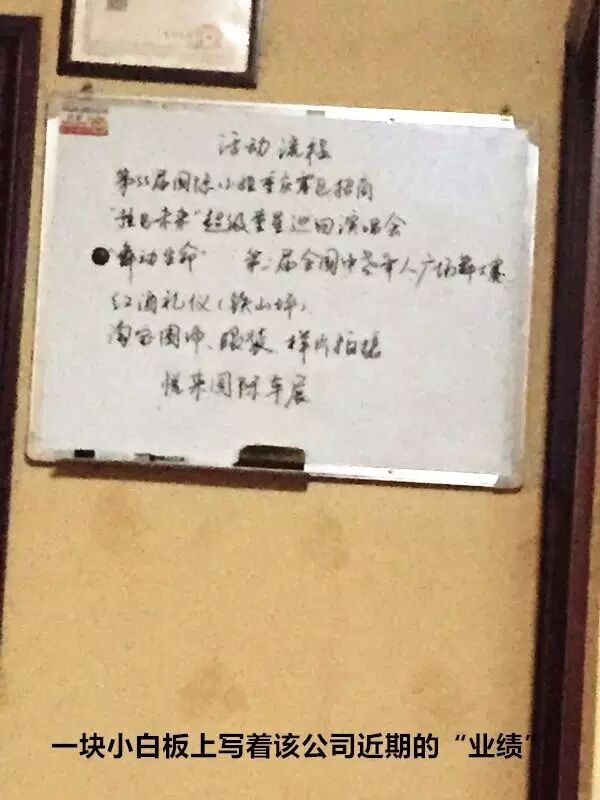 活动流程
第55届国际小姐重庆赛区招商
未来"超级童星巡回演唱会
"舞动生命" 第二届全国中老年人广场舞大赛
红酒礼仪(铁山坪)
淘宝图冲、服装、样片拍摄
悦来国际车展
一块小白板上写着该公司近期的“业绩”